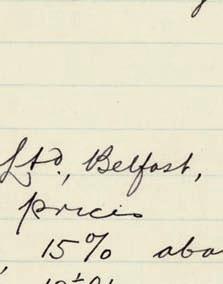 Ltd., Belfast,
prices
15% abo